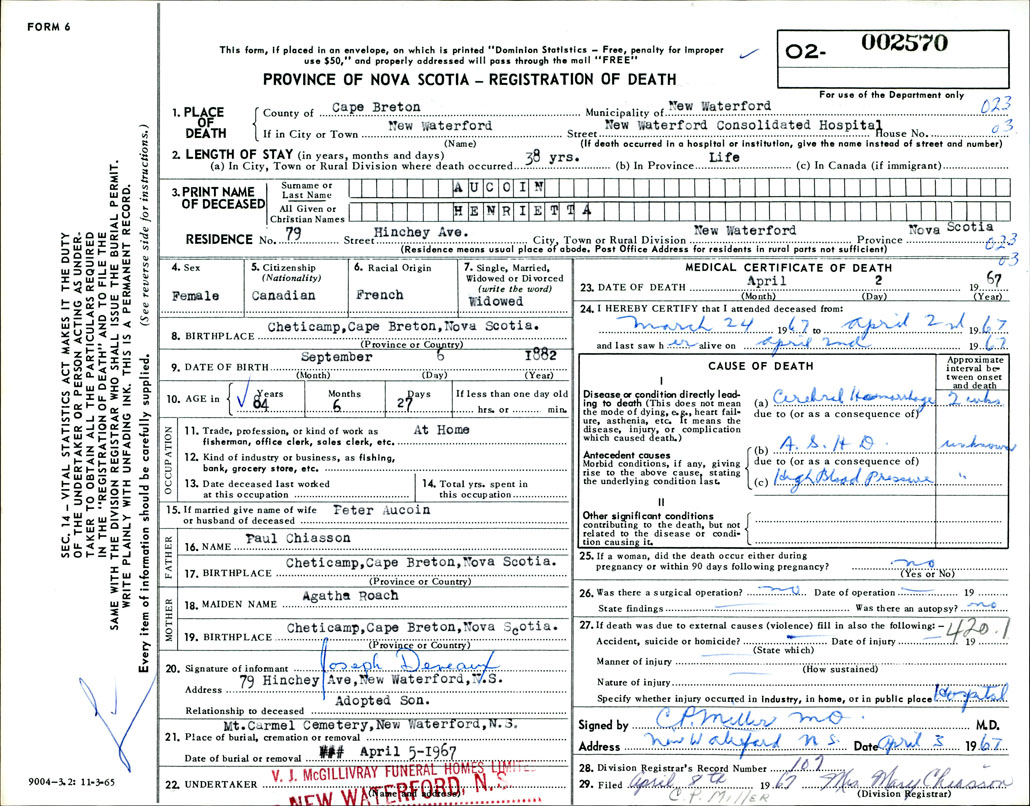 FORM 6
This form, if placed in an envelope, on which is printed "Dominion Statistics – Free, penalty for improper
use $50," and properly addressed will pass through the mail "FREE"
O2- 002570
PROVINCE OF NOVA SCOTIA – REGISTRATION OF DEATH
For use of the Department only
1. PLACE OF DEATH
County of Cape Breton Municipality of New Waterford 023
If in City or Town New Waterford Street New Waterford Consolidated Hospital House No. 03
(Name) (If death occurred in a hospital or institution, give the name instead of street and number)
2. LENGTH OF STAY (in years, months and days)
(a) In City, Town or Rural Division where death occurred 38 yrs. (b) In Province Life (c) In Canada (if immigrant)
3. PRINT NAME OF DECEASED
Surname or Last Name AUCOIN
All Given or Christian Names HENRIETTA
RESIDENCE No. 79 Street Hinchey Ave. City, Town or Rural Division New Waterford Province Nova Scotia
(Residence means usual place of abode. Post Office Address for residents in rural parts not sufficient) 023
03
4. Sex
Female
5. Citizenship
(Nationality)
Canadian
6. Racial Origin
French
7. Single, Married,
Widowed or Divorced
(write the word)
Widowed
8. BIRTHPLACE Cheticamp,Cape Breton,Nova Scotia.
(Province or Country)
9. DATE OF BIRTH September 6 1882
(Month) (Day) (Year)
10. AGE in Years 84 Months 6 Days 27 If less than one day old
hrs. or min.
OCCUPATION
11. Trade, profession, or kind of work as At Home
fisherman, office clerk, sales clerk, etc.
12. Kind of industry or business, as fishing,
bank, grocery store, etc.
13. Date deceased last worked
at this occupation
14. Total yrs. spent in
this occupation
15. If married give name of wife
or husband of deceased Peter Aucoin
FATHER
16. NAME Paul Chiasson
17. BIRTHPLACE Cheticamp,Cape Breton,Nova Scotia.
(Province or Country)
MOTHER
18. MAIDEN NAME Agatha Roach
19. BIRTHPLACE Cheticamp,Cape Breton,Nova Scotia.
(Province or Country)
20. Signature of informant Joseph Deveaux
Address 79 Hinchey Ave,New Waterford,N.S.
Relationship to deceased Adopted Son.
Mt.Carmel Cemetery,New Waterford,N.S.
21. Place of burial, cremation or removal
Date of burial or removal ### April 5-1967
22. UNDERTAKER V. J. McGILLIVRAY FUNERAL HOMES LIMITED
(Name and address)
NEW WATERFORD, N.S.
MEDICAL CERTIFICATE OF DEATH
23. DATE OF DEATH April 2 1967
(Month) (Day) (Year)
24. I HEREBY CERTIFY that I attended deceased from:
March 24 1967 to April 2nd 1967
and last saw her alive on April 2nd 1967
CAUSE OF DEATH
Approximate
interval be-
tween onset
and death
I
Disease or condition directly lead-
ing to death (This does not mean
the mode of dying, e.g., heart fail-
ure, asthenia, etc. It means the
disease, injury, or complication
which caused death.)
(a) Cerebral Haemorrhage 2 wks
due to (or as a consequence of)
Antecedent causes
Morbid conditions, if any, giving
rise to the above cause, stating
the underlying condition last.
(b) A.S.H.D. unknown
due to (or as a consequence of)
(c) High Blood Pressure "
II
Other significant conditions
contributing to the death, but not
related to the disease or condi-
tion causing it.
25. If a woman, did the death occur either during
pregnancy or within 90 days following pregnancy? no
(Yes or No)
26. Was there a surgical operation? no Date of operation 19
State findings Was there an autopsy? no
27. If death was due to external causes (violence) fill in also the following:– 420.1
Accident, suicide or homicide? Date of injury 19
(State which)
Manner of injury
(How sustained)
Nature of injury
Specify whether injury occurred in Industry, in home, or in public place Hospital
Signed by C.P. Miller MD. M.D.
Address New Waterford N S. Date April 3 1967
28. Division Registrar's Record Number 107
29. Filed April 8th 1967 Mrs. Mary Chiasson
C.P. MILLER (Division Registrar)
SEC. 14 – VITAL STATISTICS ACT MAKES IT THE DUTY
OF THE UNDERTAKER OR PERSON ACTING AS UNDER-
TAKER TO OBTAIN ALL THE PARTICULARS REQUIRED
IN THE "REGISTRATION OF DEATH" AND TO FILE THE
SAME WITH THE DIVISION REGISTRAR WHO SHALL ISSUE THE BURIAL PERMIT.
WRITE PLAINLY WITH UNFADING INK. THIS IS A PERMANENT RECORD.
Every item of information should be carefully supplied. (See reverse side for instructions.)
9004-3.2: 11-3-65